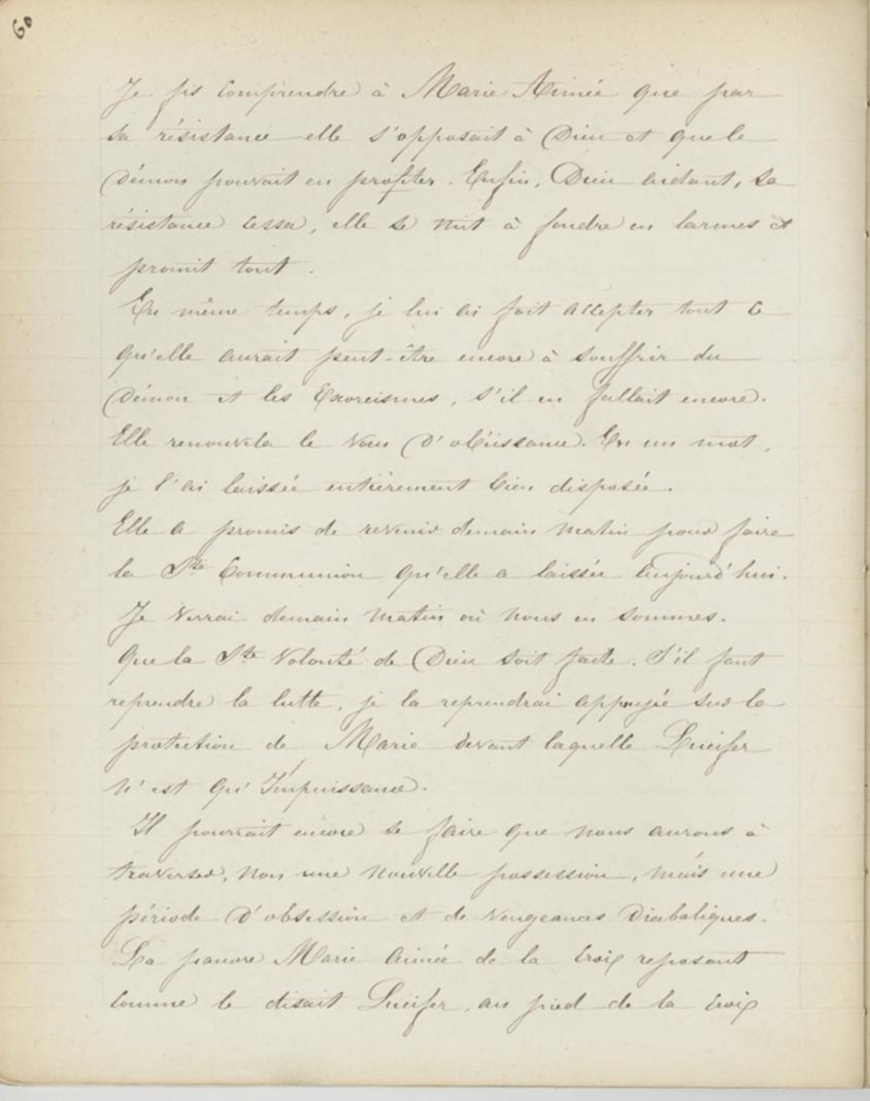 60
Je fis comprendre à Marie Aimée que par
sa résistance elle s'opposait à Dieu et que le
démon pouvait en profiter. Enfin, Dieu aidant, sa
résistance cessa, elle se mit à fondre en larmes et
promit tout.
En même temps, je lui ai fait accepter tout ce
qu'elle aurait peut-être encore à souffrir du
démon et les Exorcismes, s'il en fallait encore.
Elle renouvela le vœu d'obéissance. En un mot,
je l'ai laissée entièrement bien disposée.
Elle a promis de revenir demain matin pour faire
la Ste Communion qu'elle a laissée aujourd'hui.
Je verrai demain matin où nous en sommes.
Que la Ste Volonté de Dieu soit faite. S'il faut
reprendre la lutte, je la reprendrai appuyée sur la
protection de Marie devant laquelle Lucifer
n'est qu'Impuissance.
Il pourrait encore se faire que nous aurons à
traverser, non une nouvelle possession, mais une
période d'obsession et de vengeances Diaboliques.
La pauvre Marie Aimée de la Croix reposant
comme le disait Lucifer, au pied de la Croix